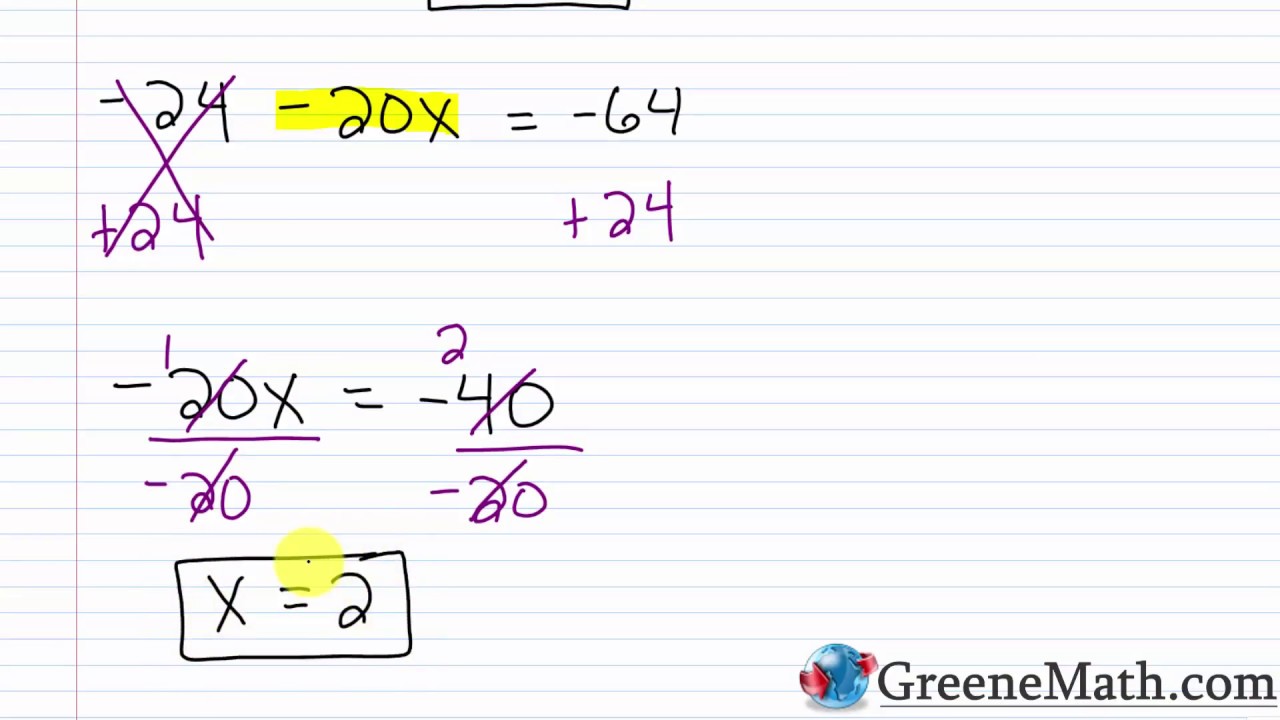 - 24 - 20x = -64
+24 +24
1 2
-20x = -40
-20 -20
x = 2
GreeneMath.com